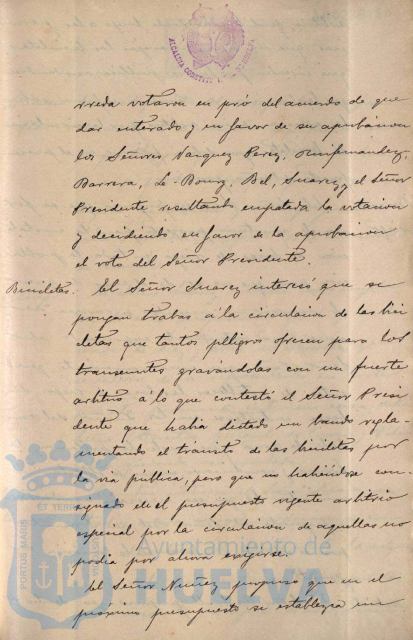 ALCALDIA CONSTIT
rreda votaron en pró del acuerdo de que
dar enterado y en favor de su aprobacion
los Señores Vazquez Perez,
Barrera, Le-Bourg, Bel, Suarez, y el Señor
Presidente resultando empatada la votacion
y decidiendo en favor de la aprobacion
el voto del Señor Presidente.
Bicicletas. El Señor Suarez interesó que se
pongan trabas á la circulacion de las bici
cletas que tantos peligros ofrecen para los
transeuntes gravándolas con un fuerte
arbitrio á lo que contestó el Señor Presi
dente que habia dictado un bando regla-
mentando el tránsito de las bicicletas por
la via pública, pero que no habiéndose con-
signado en el presupuesto vigente arbitrio
especial por la circulacion de aquellas no
podia por ahora exigirse.
El Señor Nuñez propuso que en el
próximo presupuesto se establezca un
PORTUS MARIS ET TERRÆ
Ayuntamiento de
HUELVA